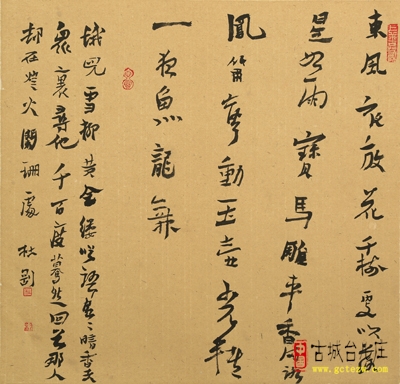 東風夜放花千樹更吹落
星如雨寶馬雕車香滿路
鳳簫聲動玉壺光轉
一夜魚龍舞
蛾兒雪柳黃金縷笑語盈盈暗香去
衆裏尋他千百度驀然回首那人
却在燈火闌珊處
古城台庄
www.gctezw.com